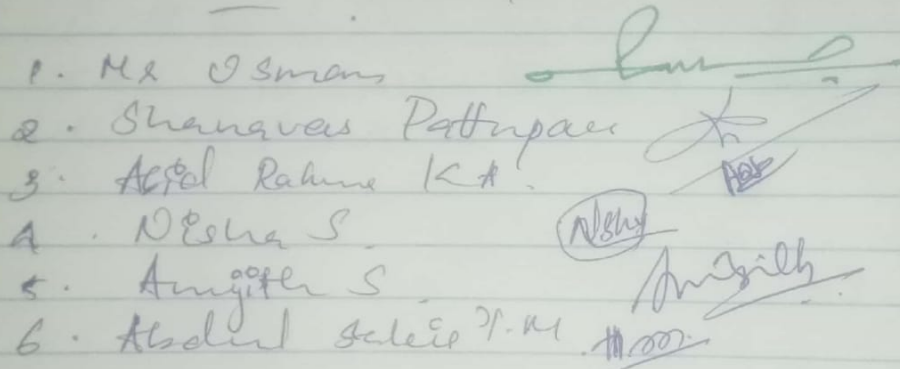 1. Mr Osman
2. Shanavas Pattupau
3. Acfal Rahme K A.
4. Nisha S. Nshy
5. Amrgith S Amrgith
6. Abdul Salie T.M